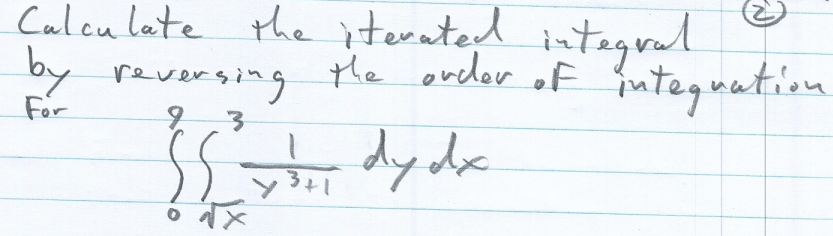 ②
Calculate the iterated integral
by reversing the order of integration
For
∫₀⁹ ∫_√x³ 1/(y³+1) dy dx